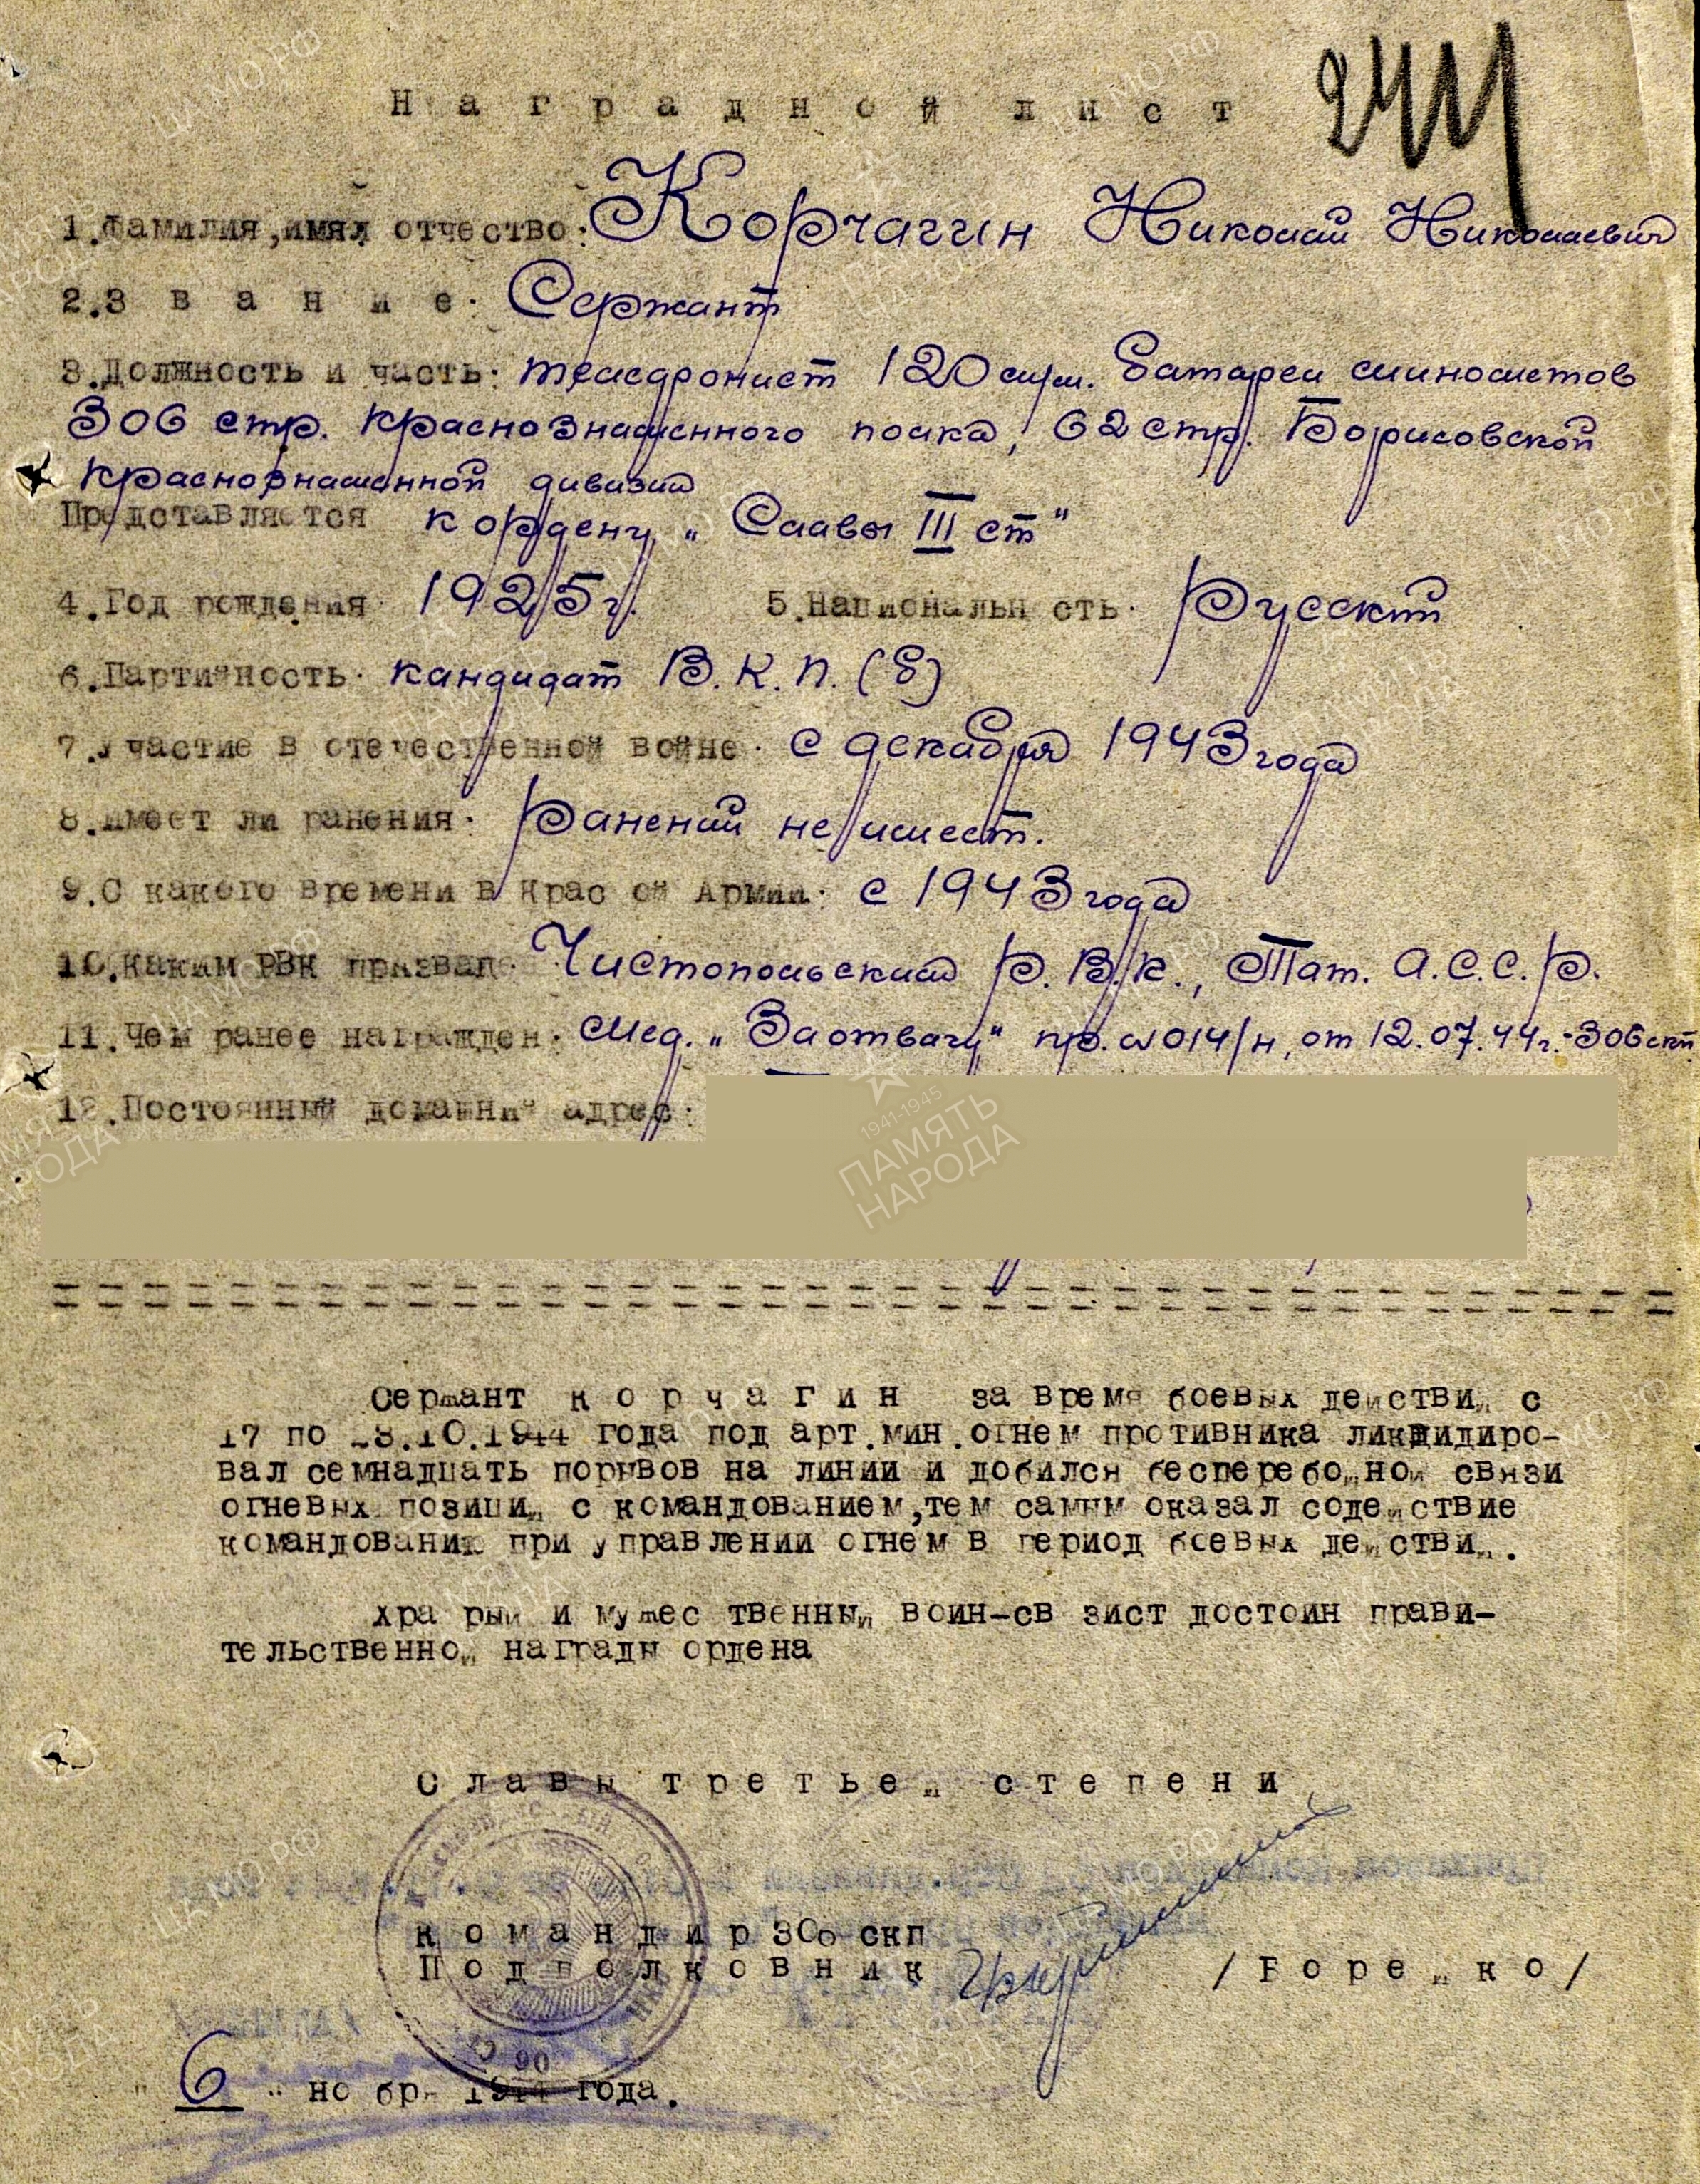 Наградной лист
241
1.Фамилия,имя,и отчество: Корчагин Николай Николаевич
2.Звание: Сержант
3.Должность и часть: телефонист 120 м/м. батареи минометов
306 стр. Краснознаменного полка, 62 стр. Борисовской
Краснознаменной дивизии
Представляется к ордену „Славы III ст"
4.Год рождения 1925 г. 5.Национальн сть: Русский
6.Партийность: кандидат В.К.П.(б)
7.Участие в отечественной войне: с декабря 1943 года
8.Имеет ли ранения: Ранений не имеет.
9.С какого времени в Крас ой Армии: с 1943 года
10.Каким РВК призван: Чистопольский Р.В.К., Тат. А.С.С.Р.
11.Чем ранее награжден: Мед. „За отвагу" пр. №014/н, от 12.07.44г.-306 скп
12.Постоянный домашний адрес:
1941-1945
ПАМЯТЬ
НАРОДА
Сержант Корчагин за время боевых действий с
17 по 28.10.1944 года под арт.мин.огнем противника ликвидиро-
вал семнадцать порывов на линии и добился бесперебойной связи
огневых позиций с командованием,тем самым оказал содействие
командованию при управлении огнем в период боевых действий.
Храбрый и мужественный воин-связист достоин прави-
тельственной награды ордена
Славы третьей степени
Командир 306 скп
Подполковник /Борейко/
90
"6" ноября 1944 года.